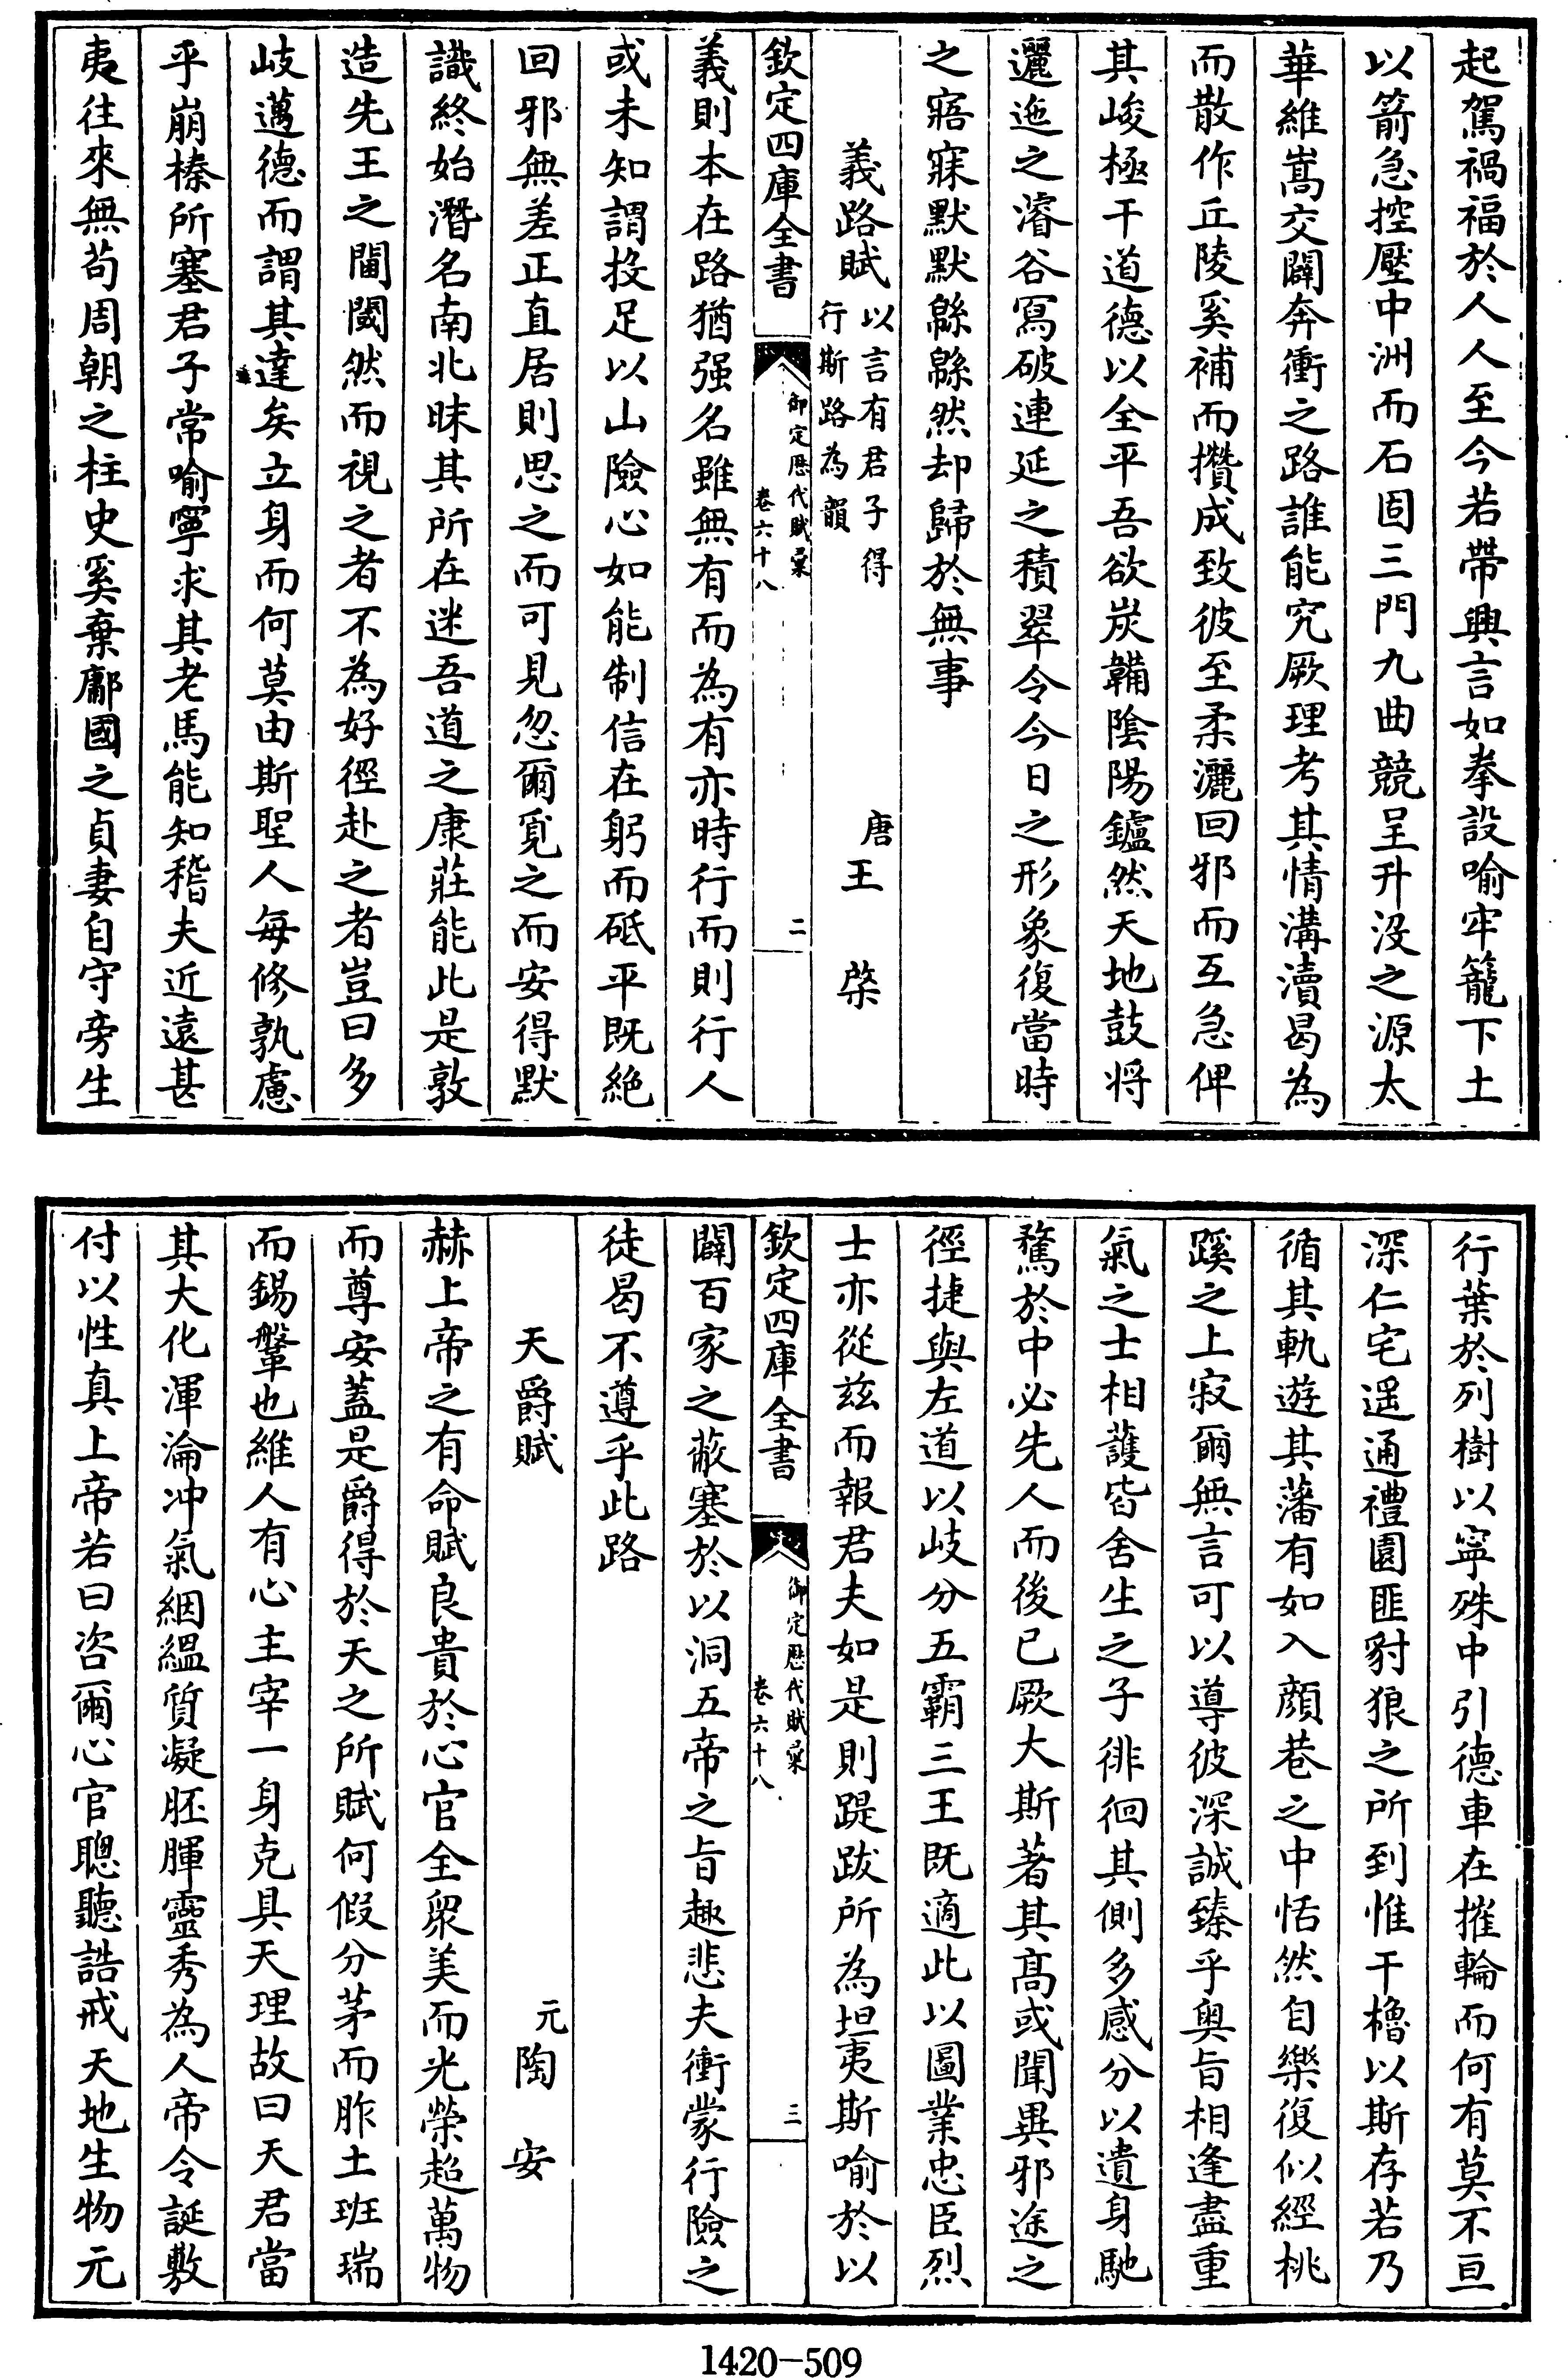 起駕禍福於人人至今若帶興言如拳設喻牢籠下土
以箭急控壓中洲而石固三門九曲競呈升沒之源太
華維嵩交闢奔衝之路誰能究厥理考其情溝瀆曷為
而散作丘陵奚補而攢成致彼至柔灑回邪而互急俾
其峻極干道德以全平吾欲炭鞴陰陽鑪然天地鼓將
邐迤之濬谷寫破連延之積翠令今日之形象復當時
之寤寐默默緜緜然却歸於無事
義路賦以言有君子得行斯路為韻 唐王棨
欽定四庫全書 御定歷代賦彙 卷六十八 二
義則本在路猶强名雖無有而為有亦時行而則行人
或未知謂投足以山險心如能制信在躬而砥平既絶
回邪無差正直居則思之而可見忽爾覓之而安得默
識終始潛名南北昧其所在迷吾道之康莊能此是敦
造先王之閫閾然而視之者不為好徑赴之者豈曰多
岐邁德而謂其達矣立身而何莫由斯聖人每修孰慮
乎崩榛所塞君子常喻寧求其老馬能知稽夫近遠甚
夷往來無苟周朝之柱史奚棄鄘國之貞妻自守旁生
行葉於列樹以寧殊中引德車在摧輪而何有莫不亘
深仁宅遥通禮園匪豺狼之所到惟干櫓以斯存若乃
循其軌遊其藩有如入顔巷之中恬然自樂復似經桃
蹊之上寂爾無言可以導彼深誠臻乎奥旨相逢盡重
氣之士相護皆舍生之子徘徊其側多感分以遺身馳
騖於中必先人而後已厥大斯著其髙或聞異邪途之
徑捷與左道以岐分五霸三王既適此以圖業忠臣烈
士亦從兹而報君夫如是則踶跋所為坦夷斯喻於以
欽定四庫全書 御定歷代賦彙 卷六十八 三
闢百家之蔽塞於以洞五帝之旨趣悲夫衝蒙行險之
徒曷不遵乎此路
天爵賦 元陶安
赫上帝之有命賦良貴於心官全衆美而光榮超萬物
而尊安蓋是爵得於天之所賦何假分茅而胙土班瑞
而錫鞶也維人有心主宰一身克具天理故曰天君當
其大化渾淪冲氣絪縕質凝胚腪靈秀為人帝令誕敷
付以性真上帝若曰咨爾心官聰聽誥戒天地生物元
1420-509